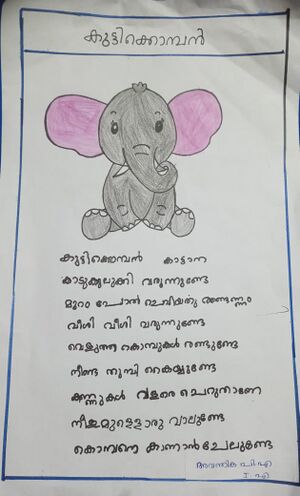 കുട്ടിക്കൊമ്പൻ
കുട്ടിക്കൊമ്പൻ കാട്ടാന
കാടുകുലുക്കി വരുന്നുണ്ടേ
മുറം പോൽ ചെവിയതു രണ്ടെണ്ണം
വീശി വീശി വരുന്നുണ്ടേ
വെളുത്ത കൊമ്പുകൾ രണ്ടുണ്ടേ
നീണ്ട തുമ്പി കൈയുണ്ടേ
കണ്ണുകൾ വളരെ ചെറുതാണേ
നീളമുള്ളൊരു വാലുണ്ടേ
കൊമ്പനെ കാണാൻ ചേലുണ്ടേ
അവന്തിക പി.എ
I എ